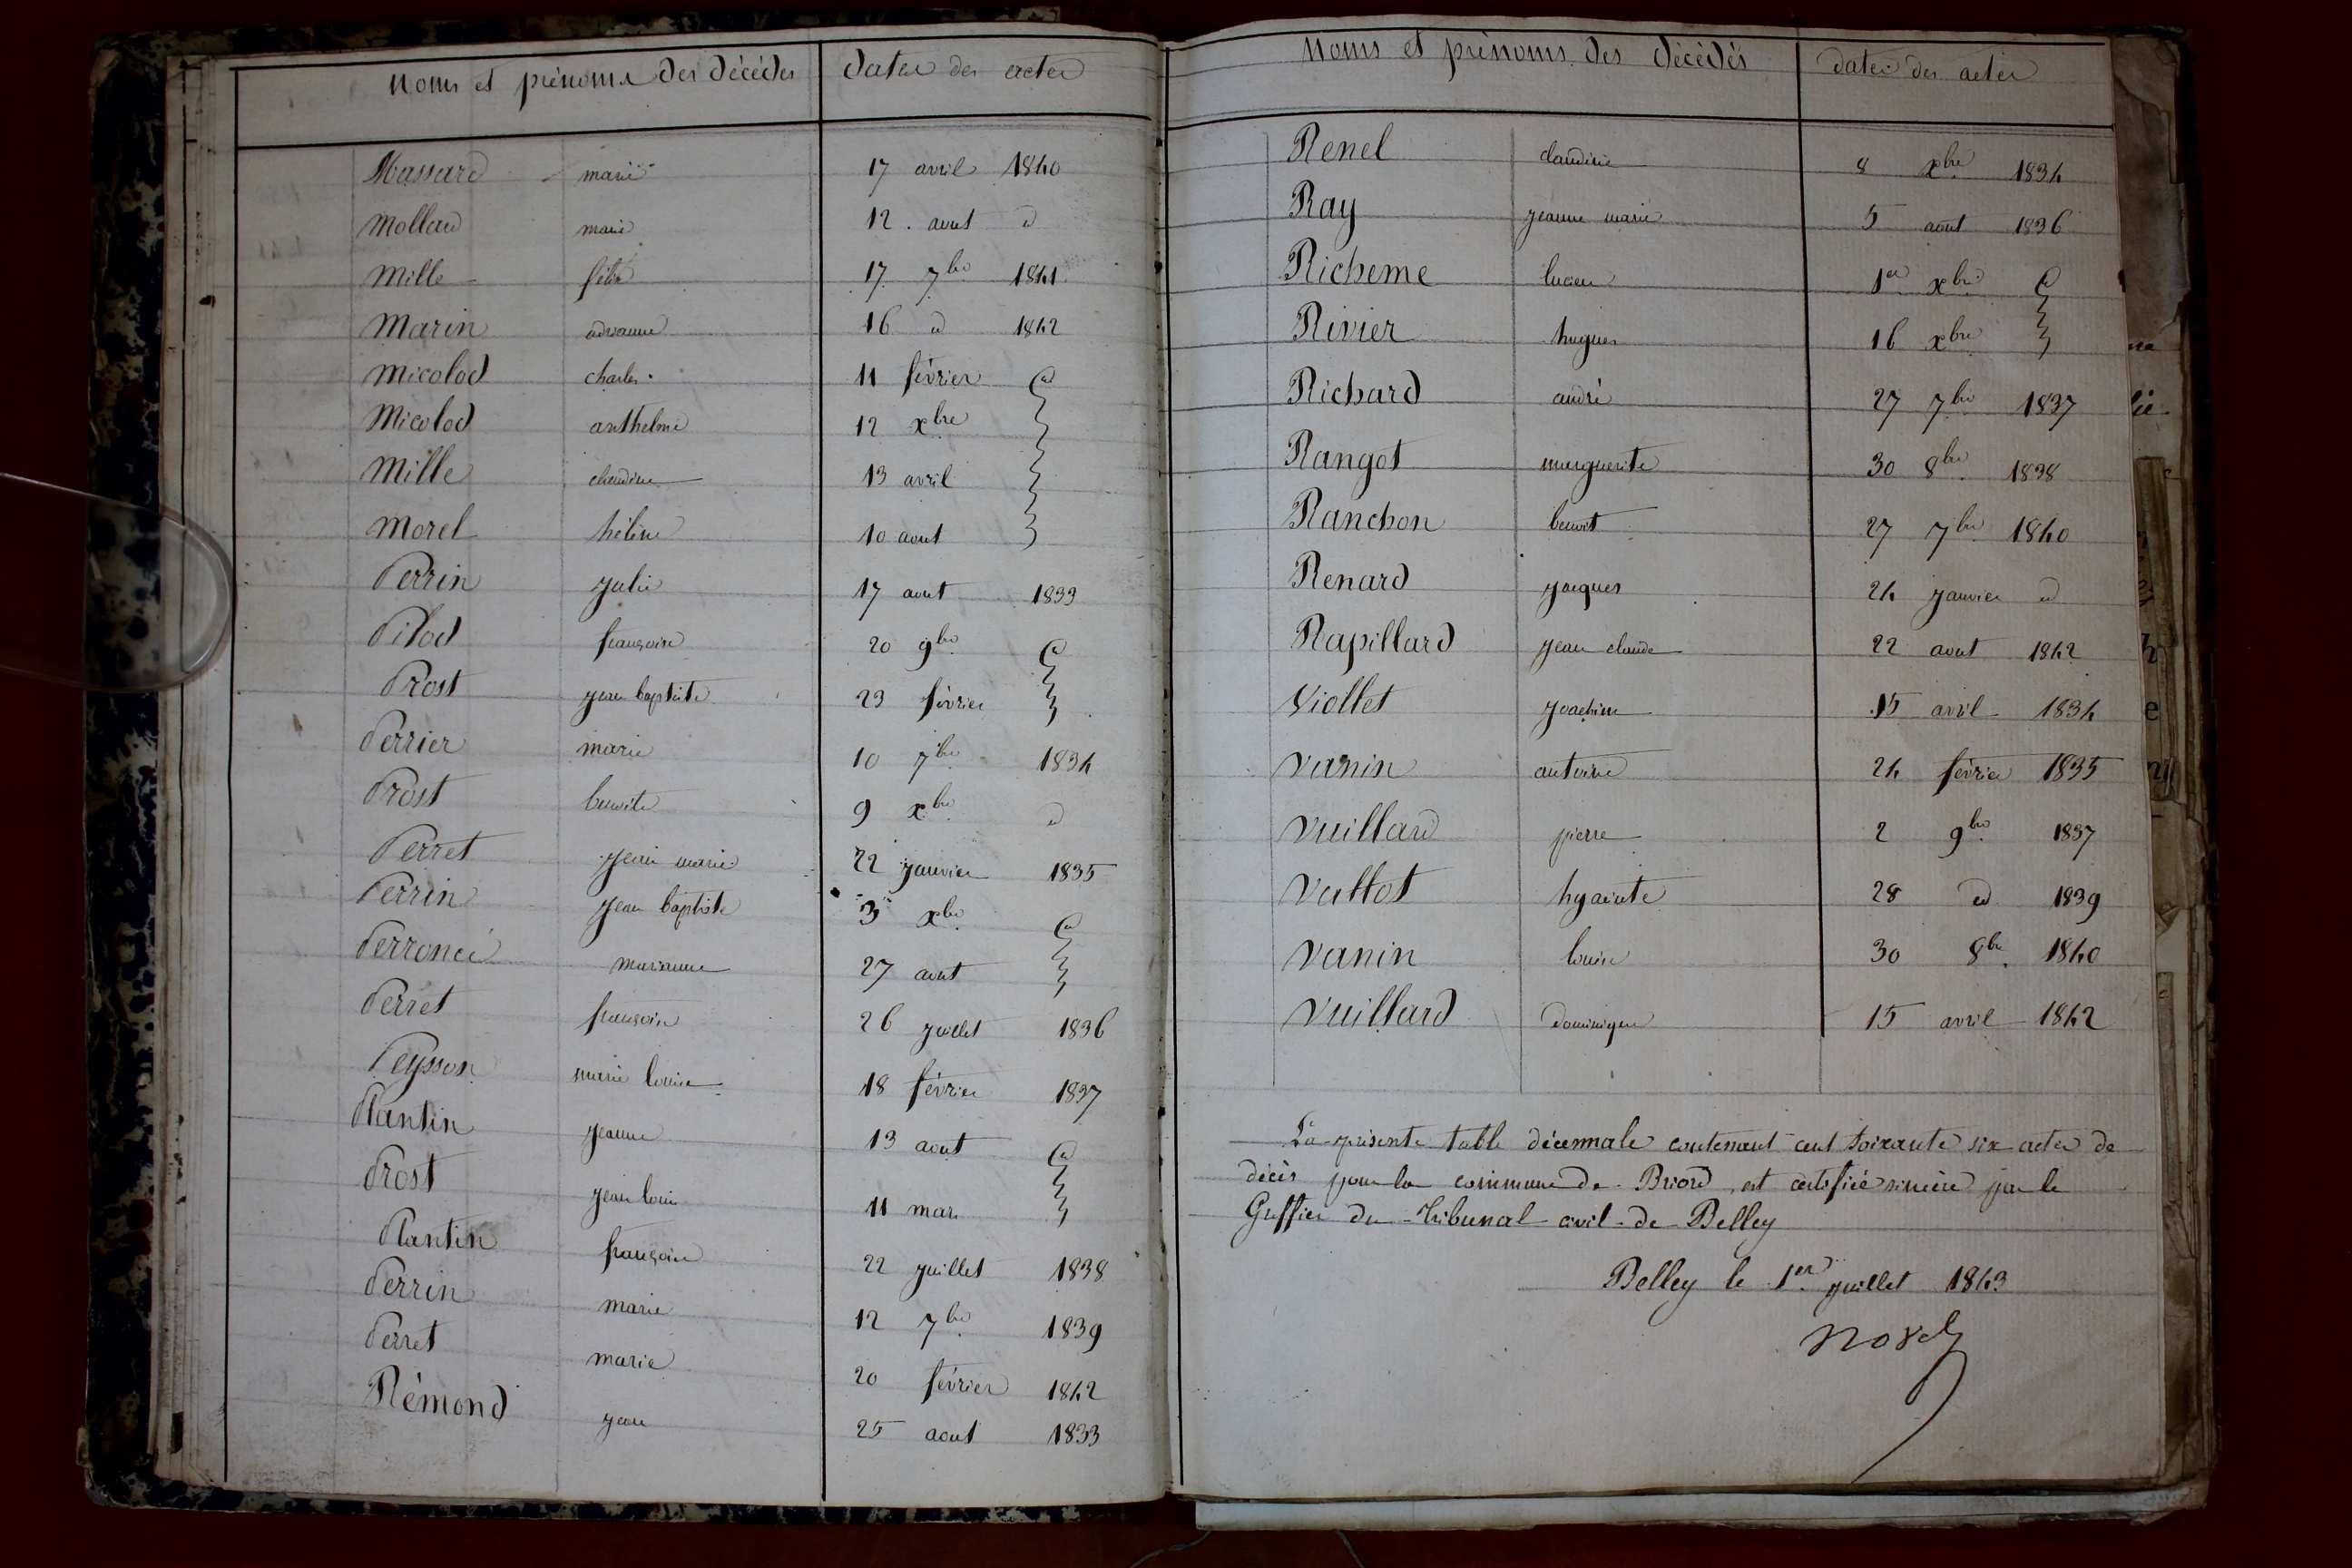 Noms et prénoms des décédés dates des actes
Massard marie 17 avril 1840
Mollard marie 12 aout id
Mille félix 17 7bre 1841
Marin adrianne 16 id 1842
Micolod charles 11 février id
Micolod anthelme 12 xbre
Mille claudine 13 avril
Morel hélène 10 aout
Perrin julie 17 aout 1833
Pilod françoise 20 9bre id
Prost jean baptiste 23 février
Perrier marie 10 7bre 1834
Prost benoite 9 xbre id
Perret jean marie 22 janvier 1835
Perrin jean baptiste 3 xbre id
Perroncé marianne 27 aout
Perret françoise 26 juillet 1836
Peysson marie louise 18 février 1837
Plantin jeanne 13 aout id
Prost jean louis 11 mars
Plantin françoise 22 juillet 1838
Perrin marie 12 7bre 1839
Perret marie 20 février 1842
Rémond jean 25 aout 1833
Noms et prénoms des décédés dates des actes
Renel claudine 8 xbre 1834
Ray jeanne marie 5 août 1836
Richeme lucien 1er xbre id
Rivier hugues 16 xbre
Richard andré 27 7bre 1837
Rangot marguerite 30 8bre 1838
Ranchon benoit 27 7bre 1840
Renard jacques 24 janvier id
Rapillard jean claude 22 aout 1842
Viollet joachim 15 avril 1834
Vanin antoine 24 février 1835
Vuillard pierre 2 9bre 1837
Vallot hyacinte 28 id 1839
Vanin louise 30 8bre 1840
Vuillard dominique 15 avril 1842
La présente table décennale contenant cent soixante six actes de
décès pour la commune de Briord, est certifiée sincère par le
Greffier du Tribunal civil de Belley
Belley le 1er juillet 1843